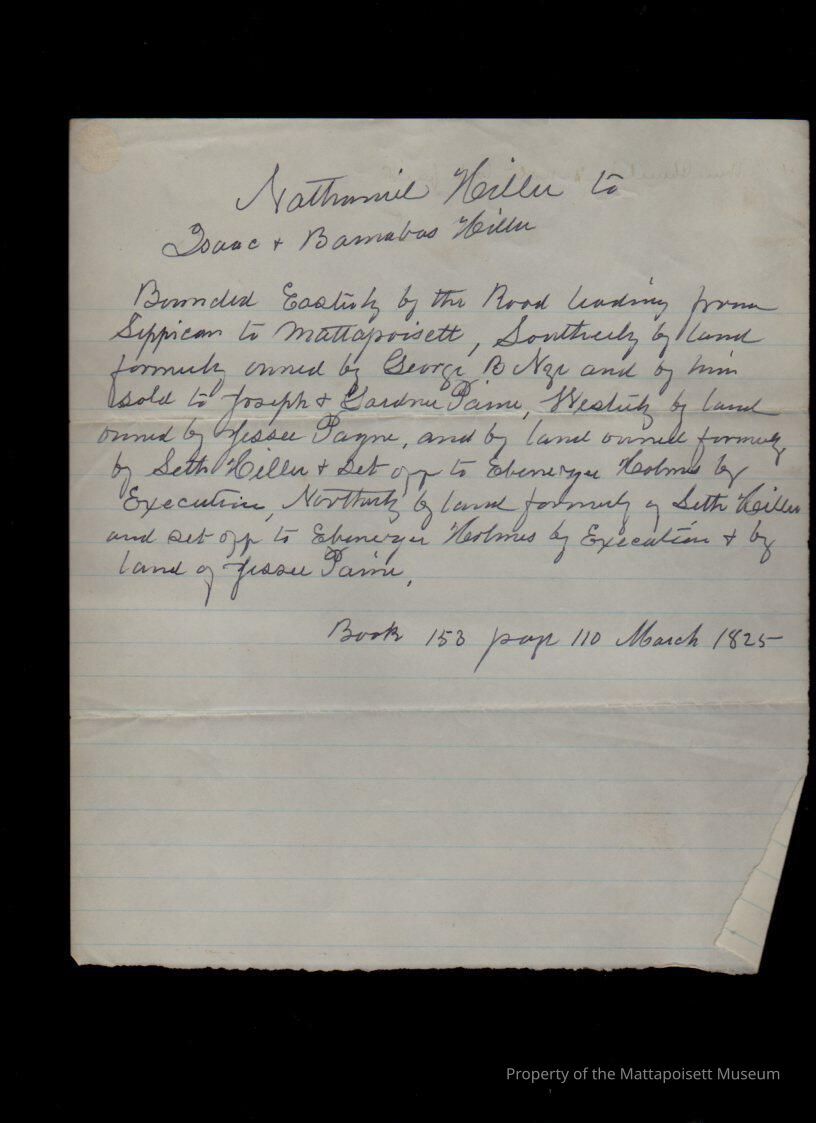 Nathaniel Hiller to
Isaac & Barnabas Hiller
Bounded Easterly by the Road leading from
Sippican to Mattapoisett, Southerly by land
formerly owned by George B Nye and by him
sold to Joseph & Gardner Paine, Westerly by land
owned by Jessee Payne, and by land owned formerly
by Seth Hiller & set off to Ebenezer Holmes by
Execution, Northerly by land formerly of Seth Hiller
and set off to Ebenezer Holmes by Execution & by
land of Jessee Paine,
Book 153 page 110 March 1825
Property of the Mattapoisett Museum